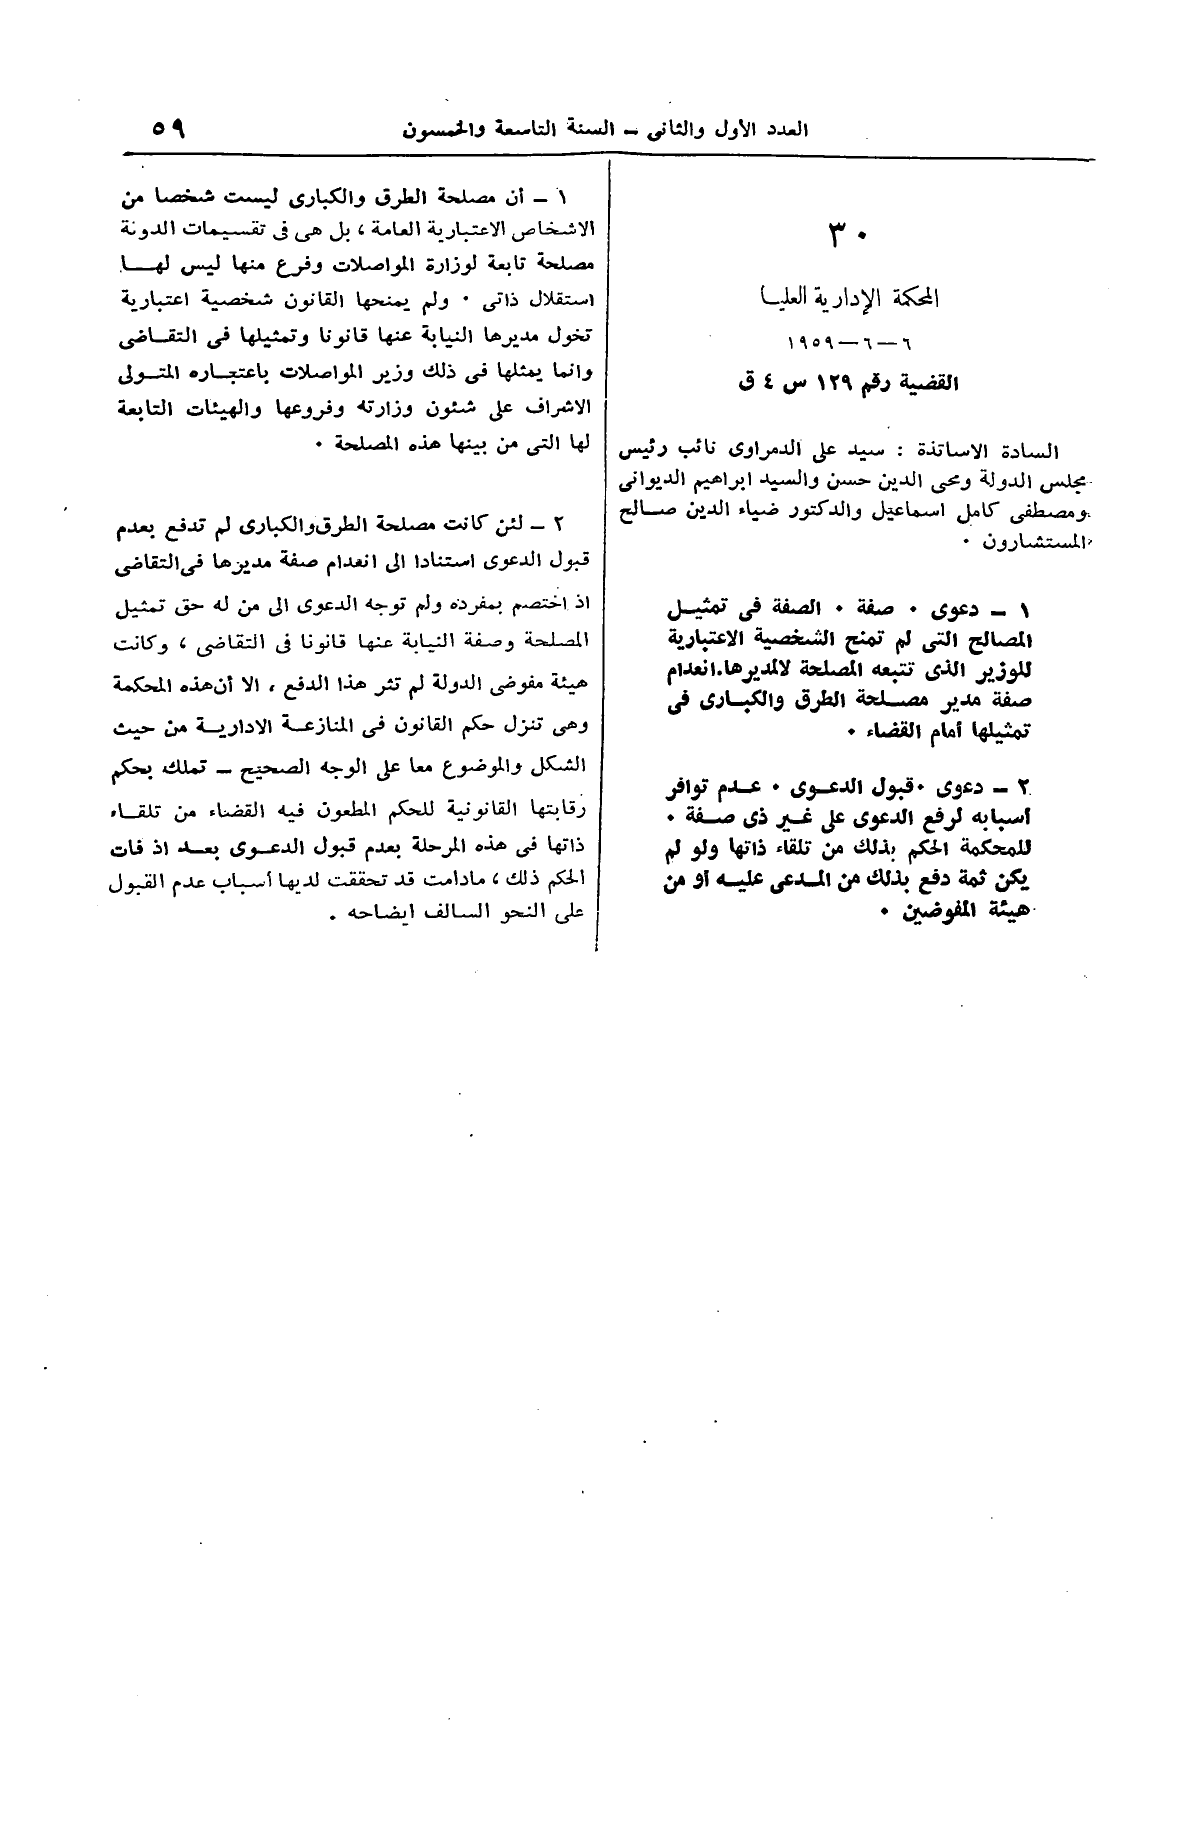 العدد الأول والثانى – السنة التاسعة والخمسون ٥٩
٣٠
المحكمة الإدارية العليا
٦ – ٦ – ١٩٥٩
القضية رقم ١٢٩ س ٤ ق
السادة الاساتذة : سيد على الدمراوى نائب رئيس
مجلس الدولة ومحى الدين حسن والسيد ابراهيم الديوانى
ومصطفى كامل اسماعيل والدكتور ضياء الدين صالح
المستشارون ٠
١ – دعوى ٠ صفة ٠ الصفة فى تمثيل
المصالح التى لم تمنح الشخصية الاعتبارية
للوزير الذى تتبعه المصلحة لالمديرها.انعدام
صفة مدير مصلحة الطرق والكبارى فى
تمثيلها أمام القضاء ٠
٢ – دعوى ٠ قبول الدعوى ٠ عدم توافر
أسبابه لرفع الدعوى على غير ذى صفة ٠
للمحكمة الحكم بذلك من تلقاء ذاتها ولو لم
يكن ثمة دفع بذلك من المدعى عليه أو من
هيئة المفوضين ٠
١ – أن مصلحة الطرق والكبارى ليست شخصا من
الاشخاص الاعتبارية العامة ، بل هى فى تقسيمات الدونة
مصلحة تابعة لوزارة المواصلات وفرع منها ليس لها
استقلال ذاتى ٠ ولم يمنحها القانون شخصية اعتبارية
تخول مديرها النيابة عنها قانونا وتمثيلها فى التقاضى
وانما يمثلها فى ذلك وزير المواصلات باعتجاره المتولى
الاشراف على شئون وزارته وفروعها والهيئات التابعة
لها التى من بينها هذه المصلحة ٠
٢ – لئن كانت مصلحة الطرق والكبارى لم تدفع بعدم
قبول الدعوى استنادا الى انعدام صفة مديرها فى التقاضى
اذ اختصم بمفرده ولم توجه الدعوى الى من له حق تمثيل
المصلحة وصفة النيابة عنها قانونا فى التقاضى ، وكانت
هيئة مفوضى الدولة لم تثر هذا الدفع ، الا أن هذه المحكمة
وهى تنزل حكم القانون فى المنازعة الادارية من حيث
الشكل والموضوع معا على الوجه الصحيح – تملك بحكم
رقابتها القانونية للحكم المطعون فيه القضاء من تلقاء
ذاتها فى هذه المرحلة بعدم قبول الدعوى بعد اذ فات
الحكم ذلك ، مادامت قد تحققت لديها أسباب عدم القبول
على النحو السالف ايضاحه .